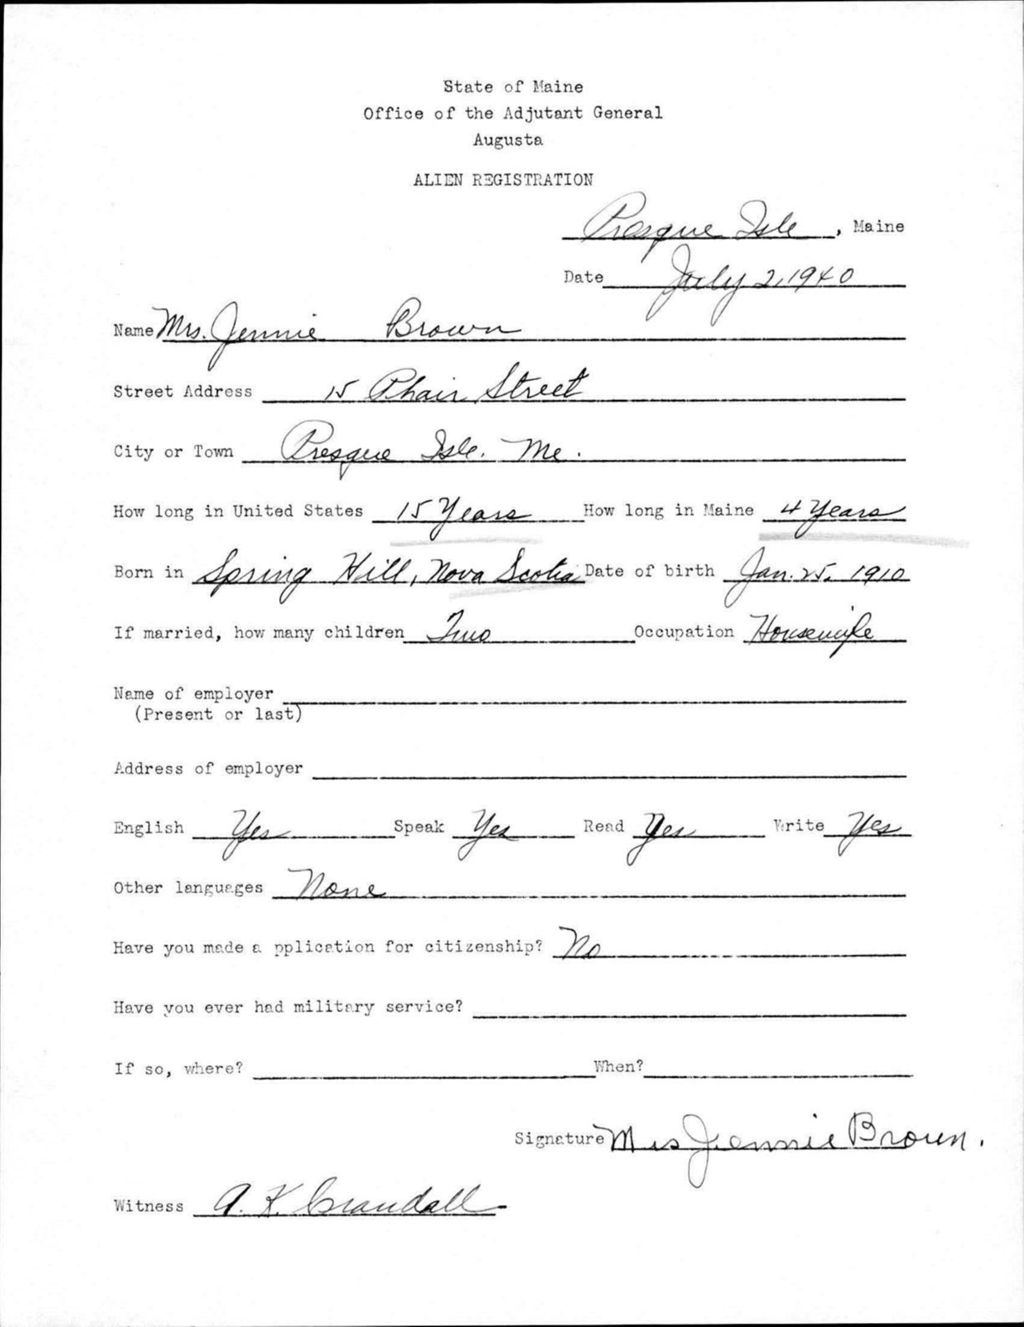 State of Maine
Office of the Adjutant General
Augusta
ALIEN REGISTRATION
Presque Isle, Maine
Date July 2, 1940
Name Mrs. Jennie Brown
Street Address 15 Phair Street
City or Town Presque Isle. Me.
How long in United States 15 Years How long in Maine 4 Years
Born in Spring Hill, Nova Scotia Date of birth Jan. 25. 1910
If married, how many children Two Occupation Housewife
Name of employer
(Present or last)
Address of employer
English Yes Speak Yes Read Yes Write Yes
Other languages None
Have you made a pplication for citizenship? No
Have you ever had military service?
If so, where? When?
Signature Mrs Jennie Brown.
Witness A. K. Crandall